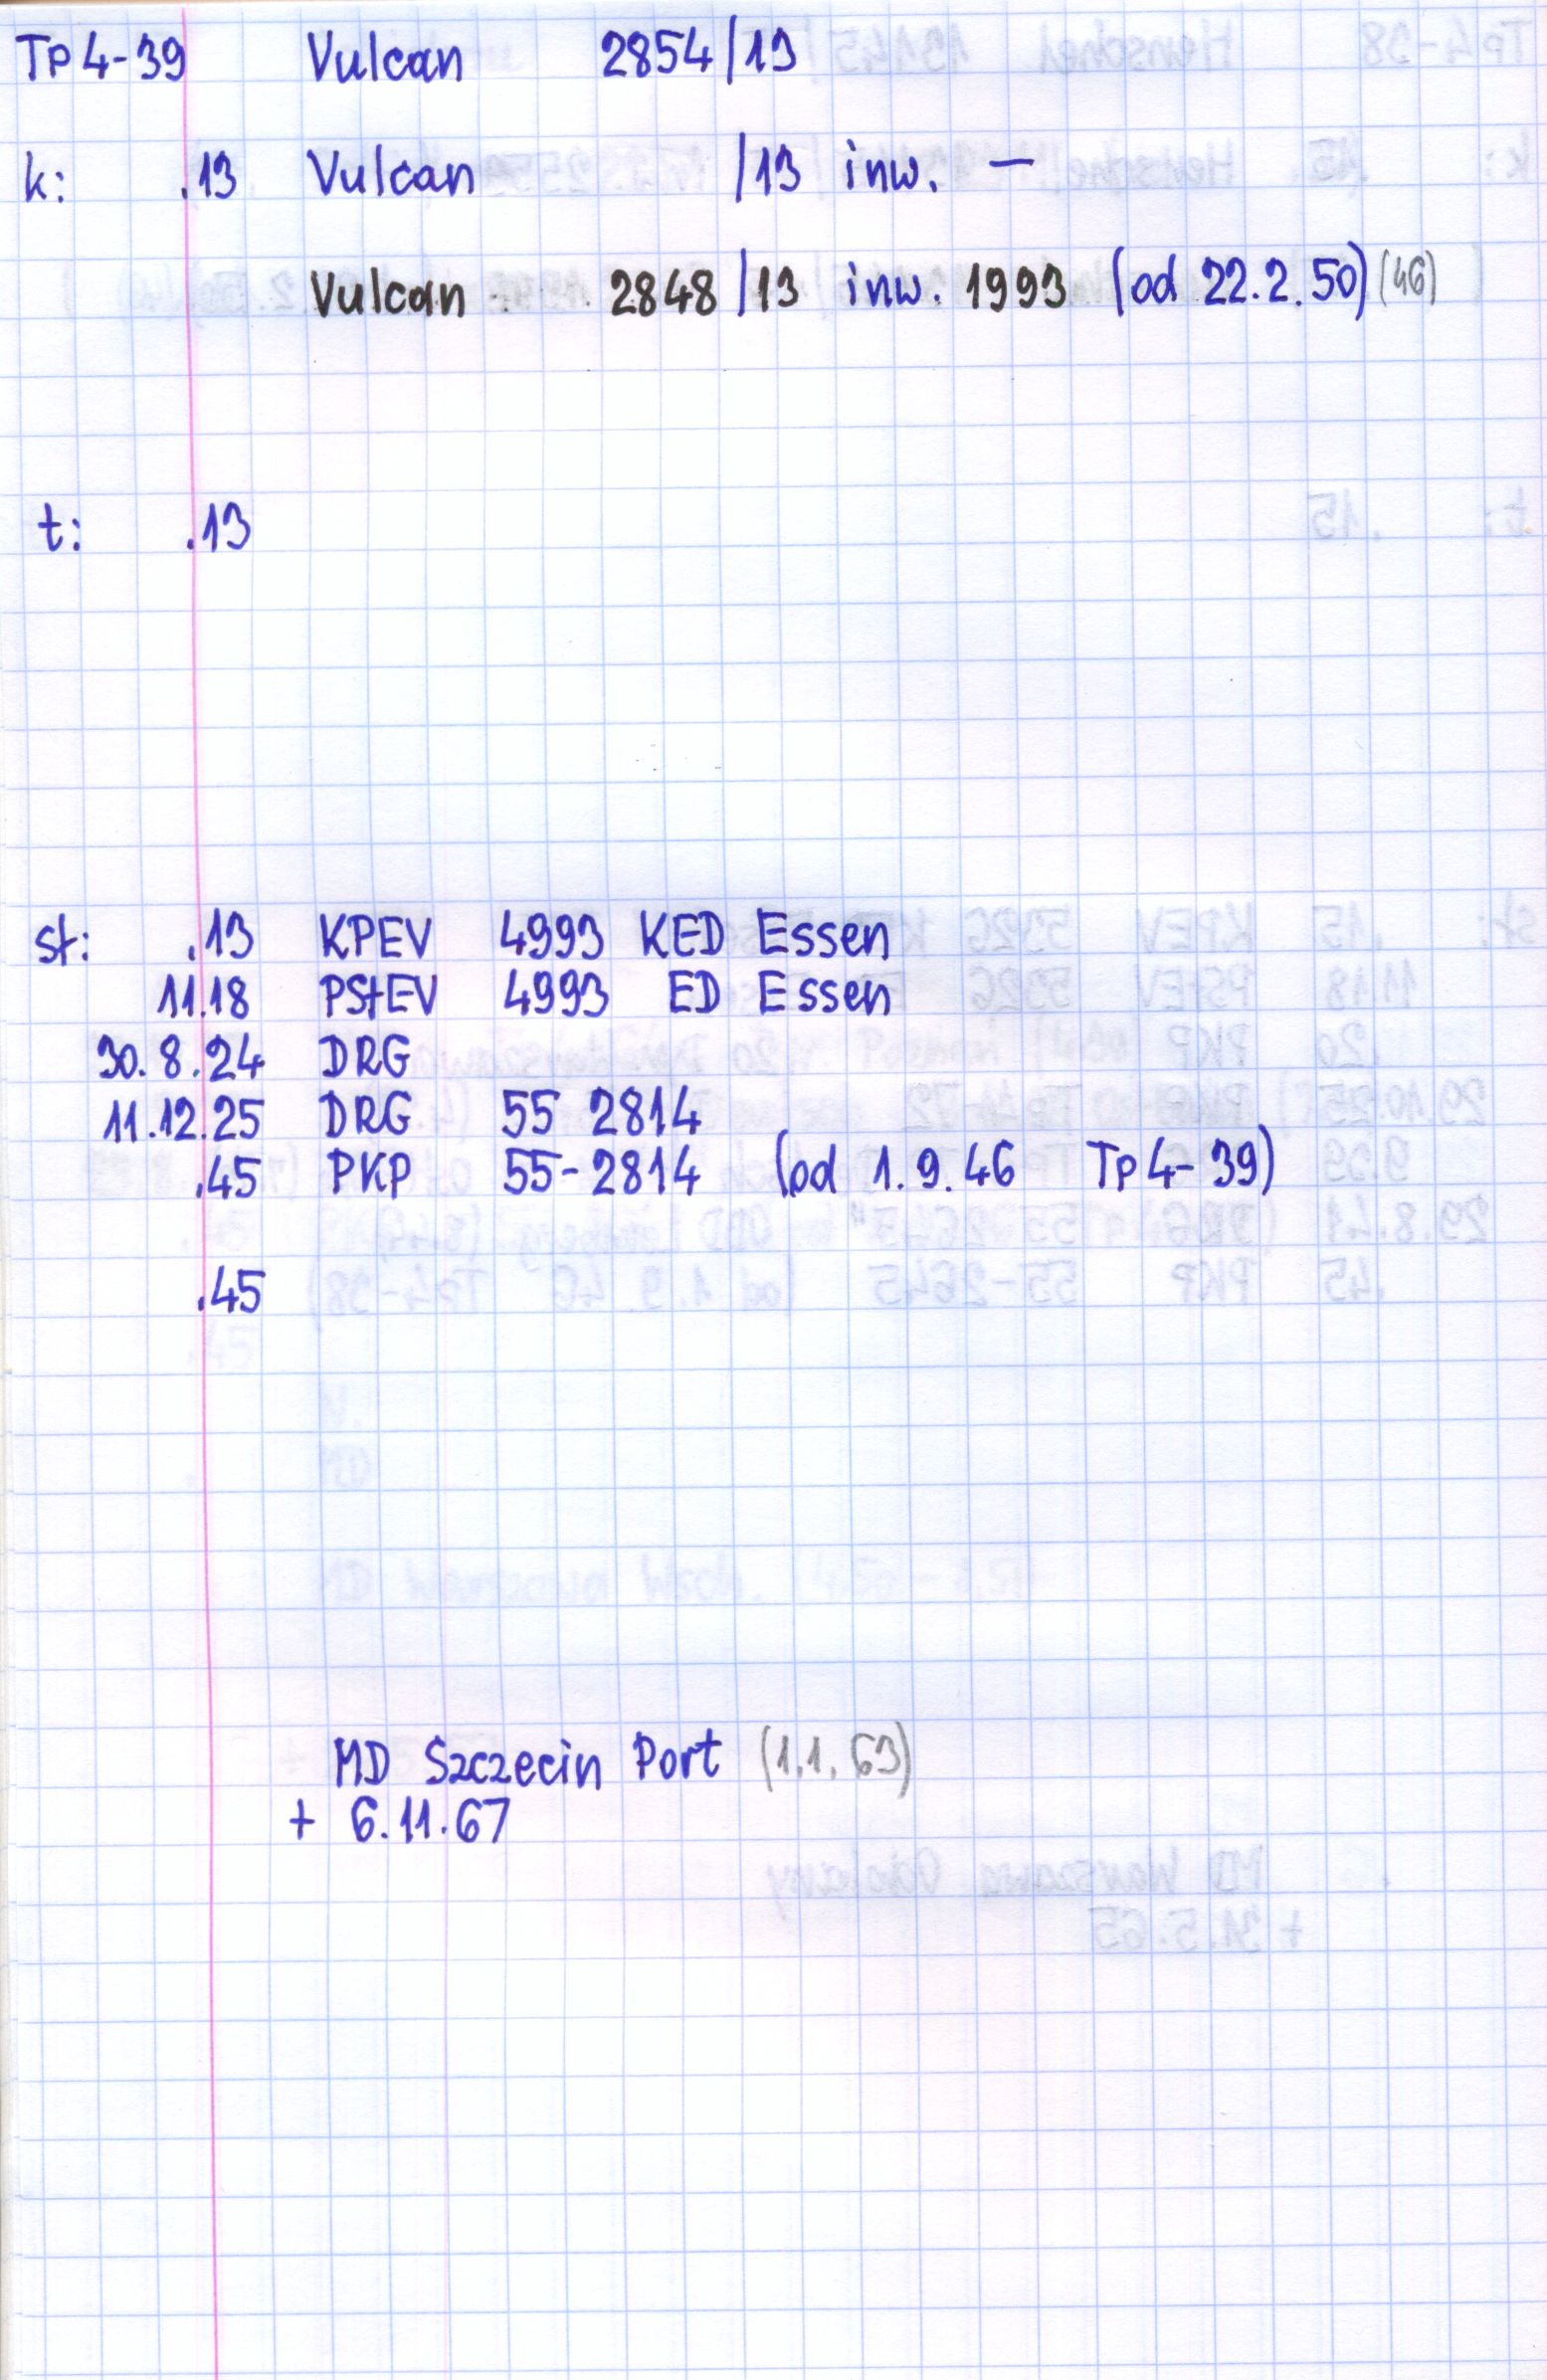 Tp4-39 Vulcan 2854/13
k: .13 Vulcan /13 inw. —
Vulcan 2848/13 inw. 1993 (od 22.2.50) (46)
t: .13
st: .13 KPEV 4993 KED Essen
11.18 PStEV 4993 ED Essen
30.8.24 DRG
11.12.25 DRG 55 2814
.45 PKP 55-2814 (od 1.9.46 Tp4-39)
.45
MD Szczecin Port (1.1.63)
+ 6.11.67